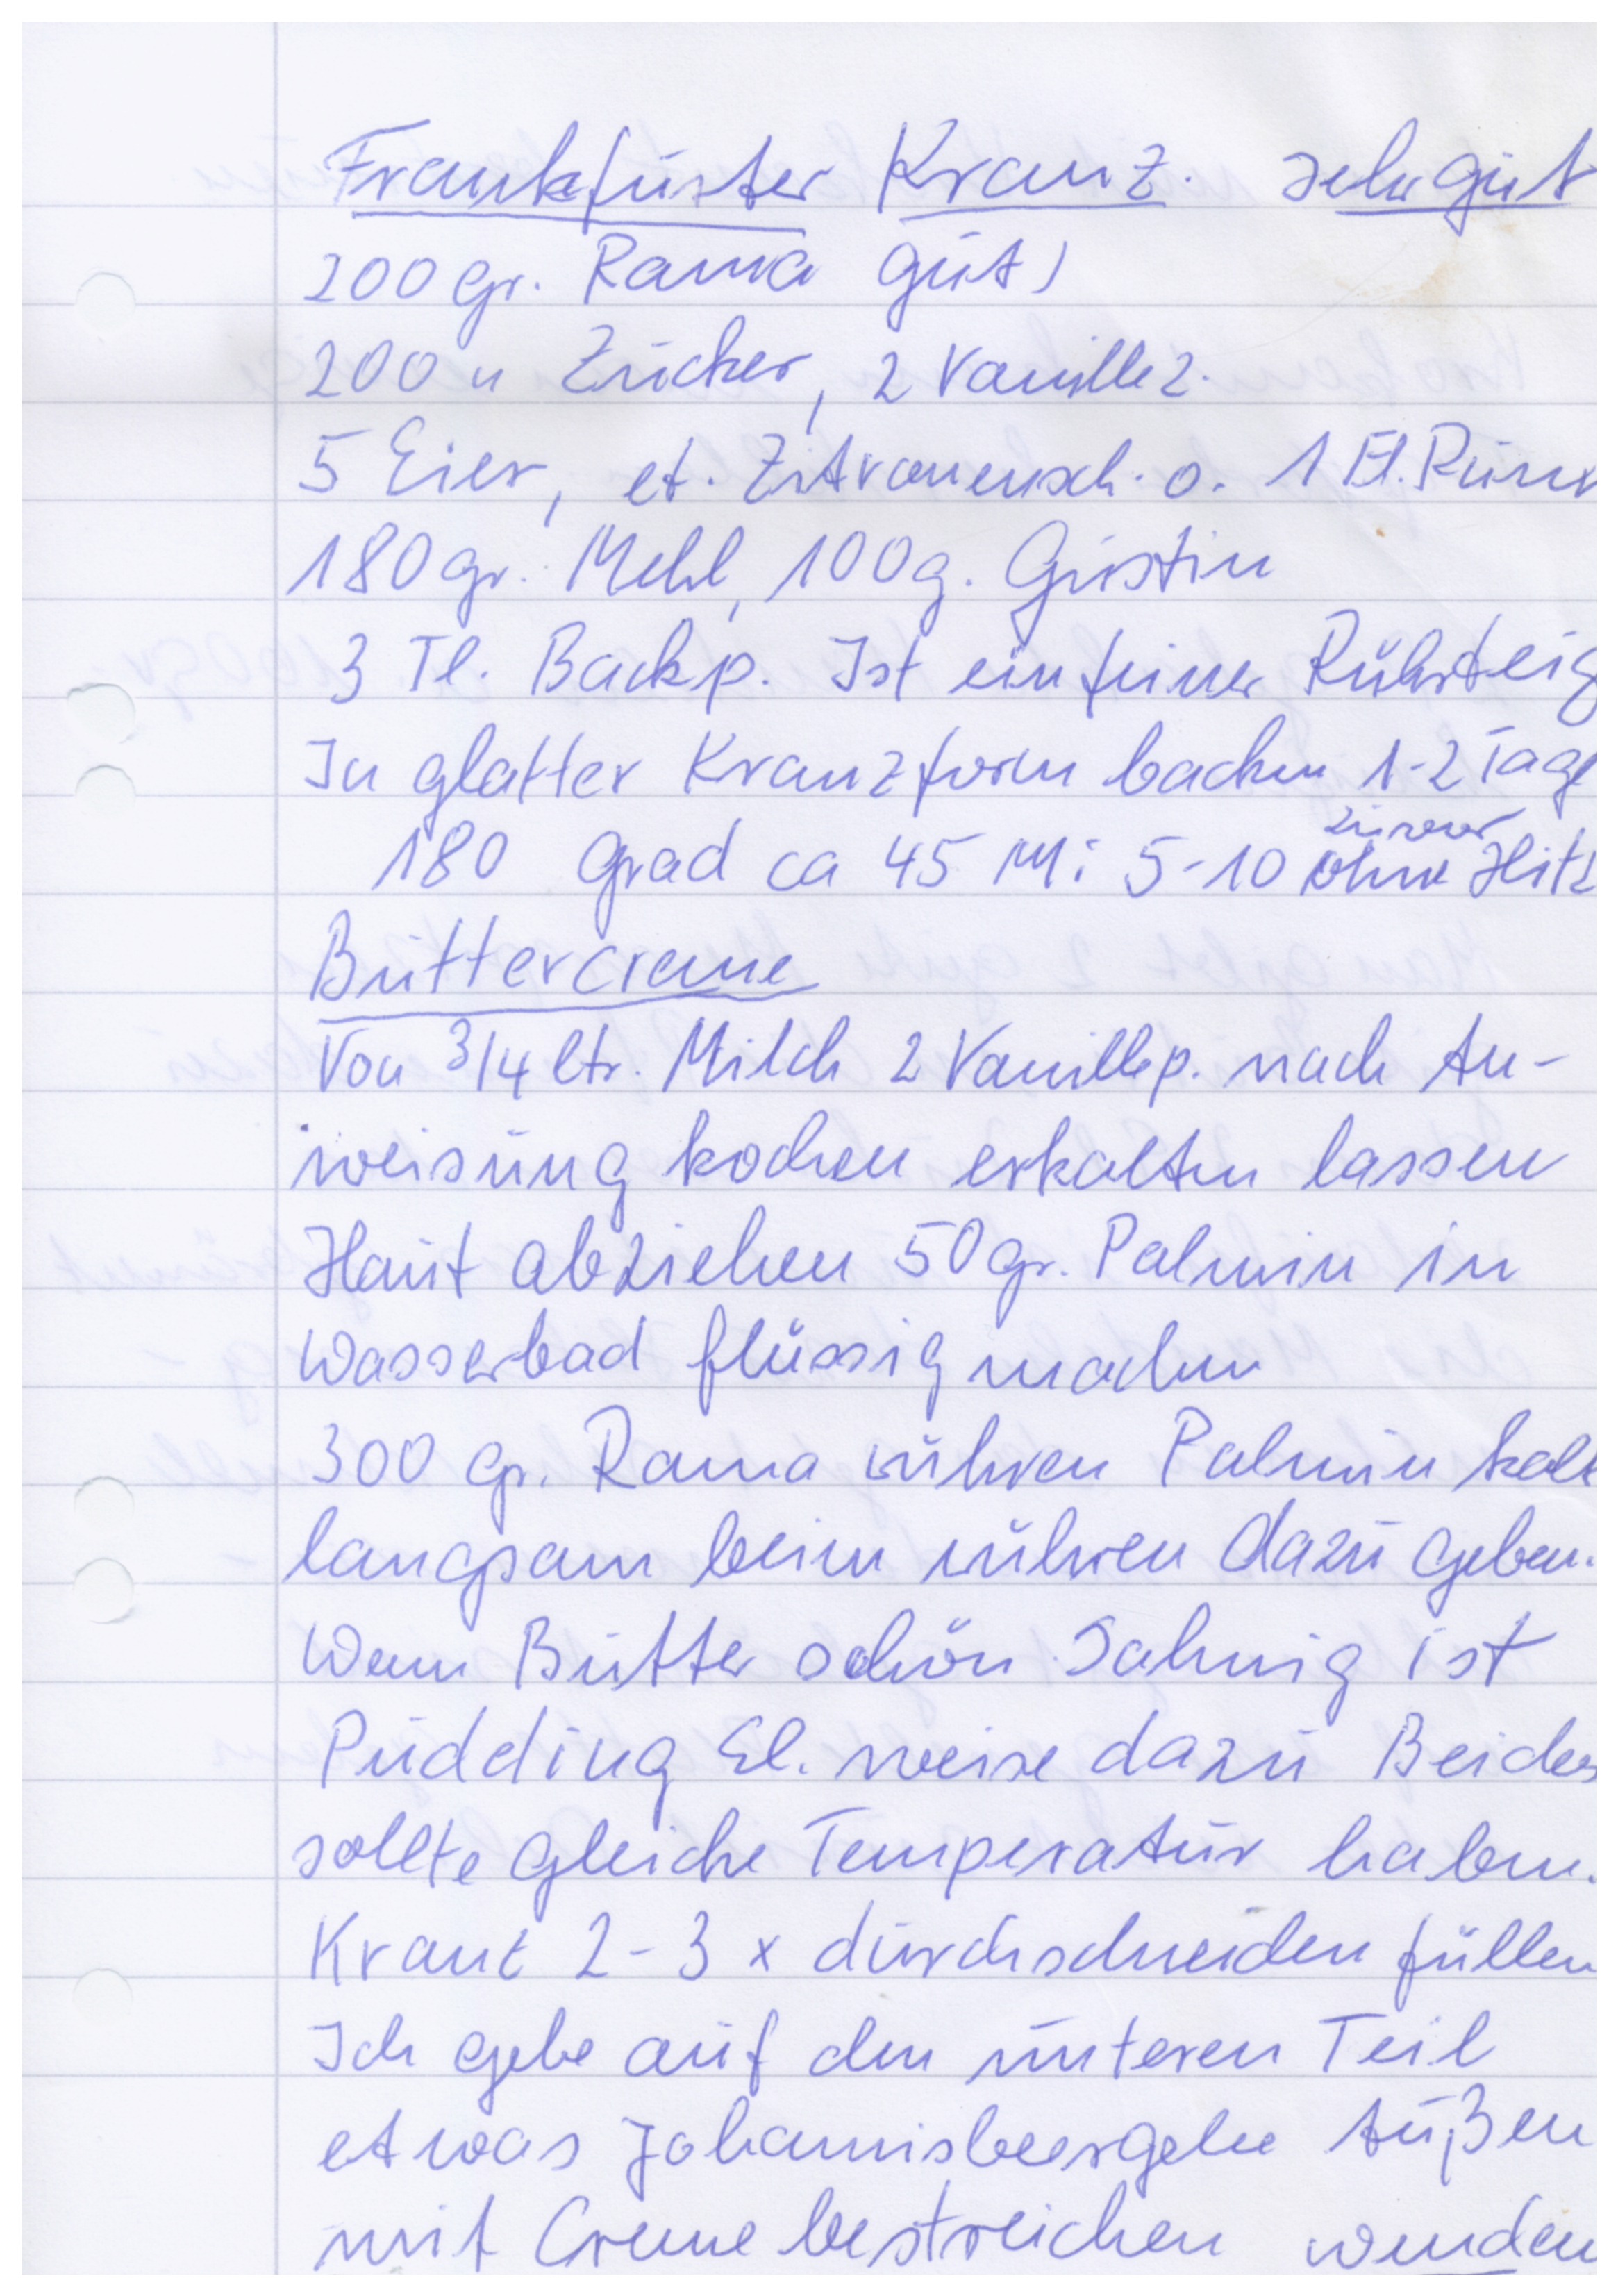 Frankfurter Kranz. sehr gut
200 gr. Rama gut)
200 " Zucker, 2 Vanillez.
5 Eier, et. Zitronensch. o. 1 El. Rum
180 gr. Mehl, 100 g. Gustin
3 Tl. Backp. Ist ein feiner Rührteig
In glatter Kranzform backen 1-2 Tage
zuvor
180 Grad ca 45 Mi 5-10 ohne Hitz
Buttercreme
Von 3/4 ltr. Milch 2 Vanillep. nach An-
weisung kochen erkalten lassen
Haut abziehen 50 gr. Palmin in
Wasserbad flüssig machen
300 gr. Rama rühren Palmin kalt
langsam beim rühren dazu geben.
Wenn Butter schön Sahnig ist
Pudding El. weise dazu Beides
sollte gleiche Temperatur haben.
Kranz 2-3 x durchschneiden füllen
Ich gebe auf den unteren Teil
etwas Johannisbeergelee Außen
mit Creme bestreichen wenden